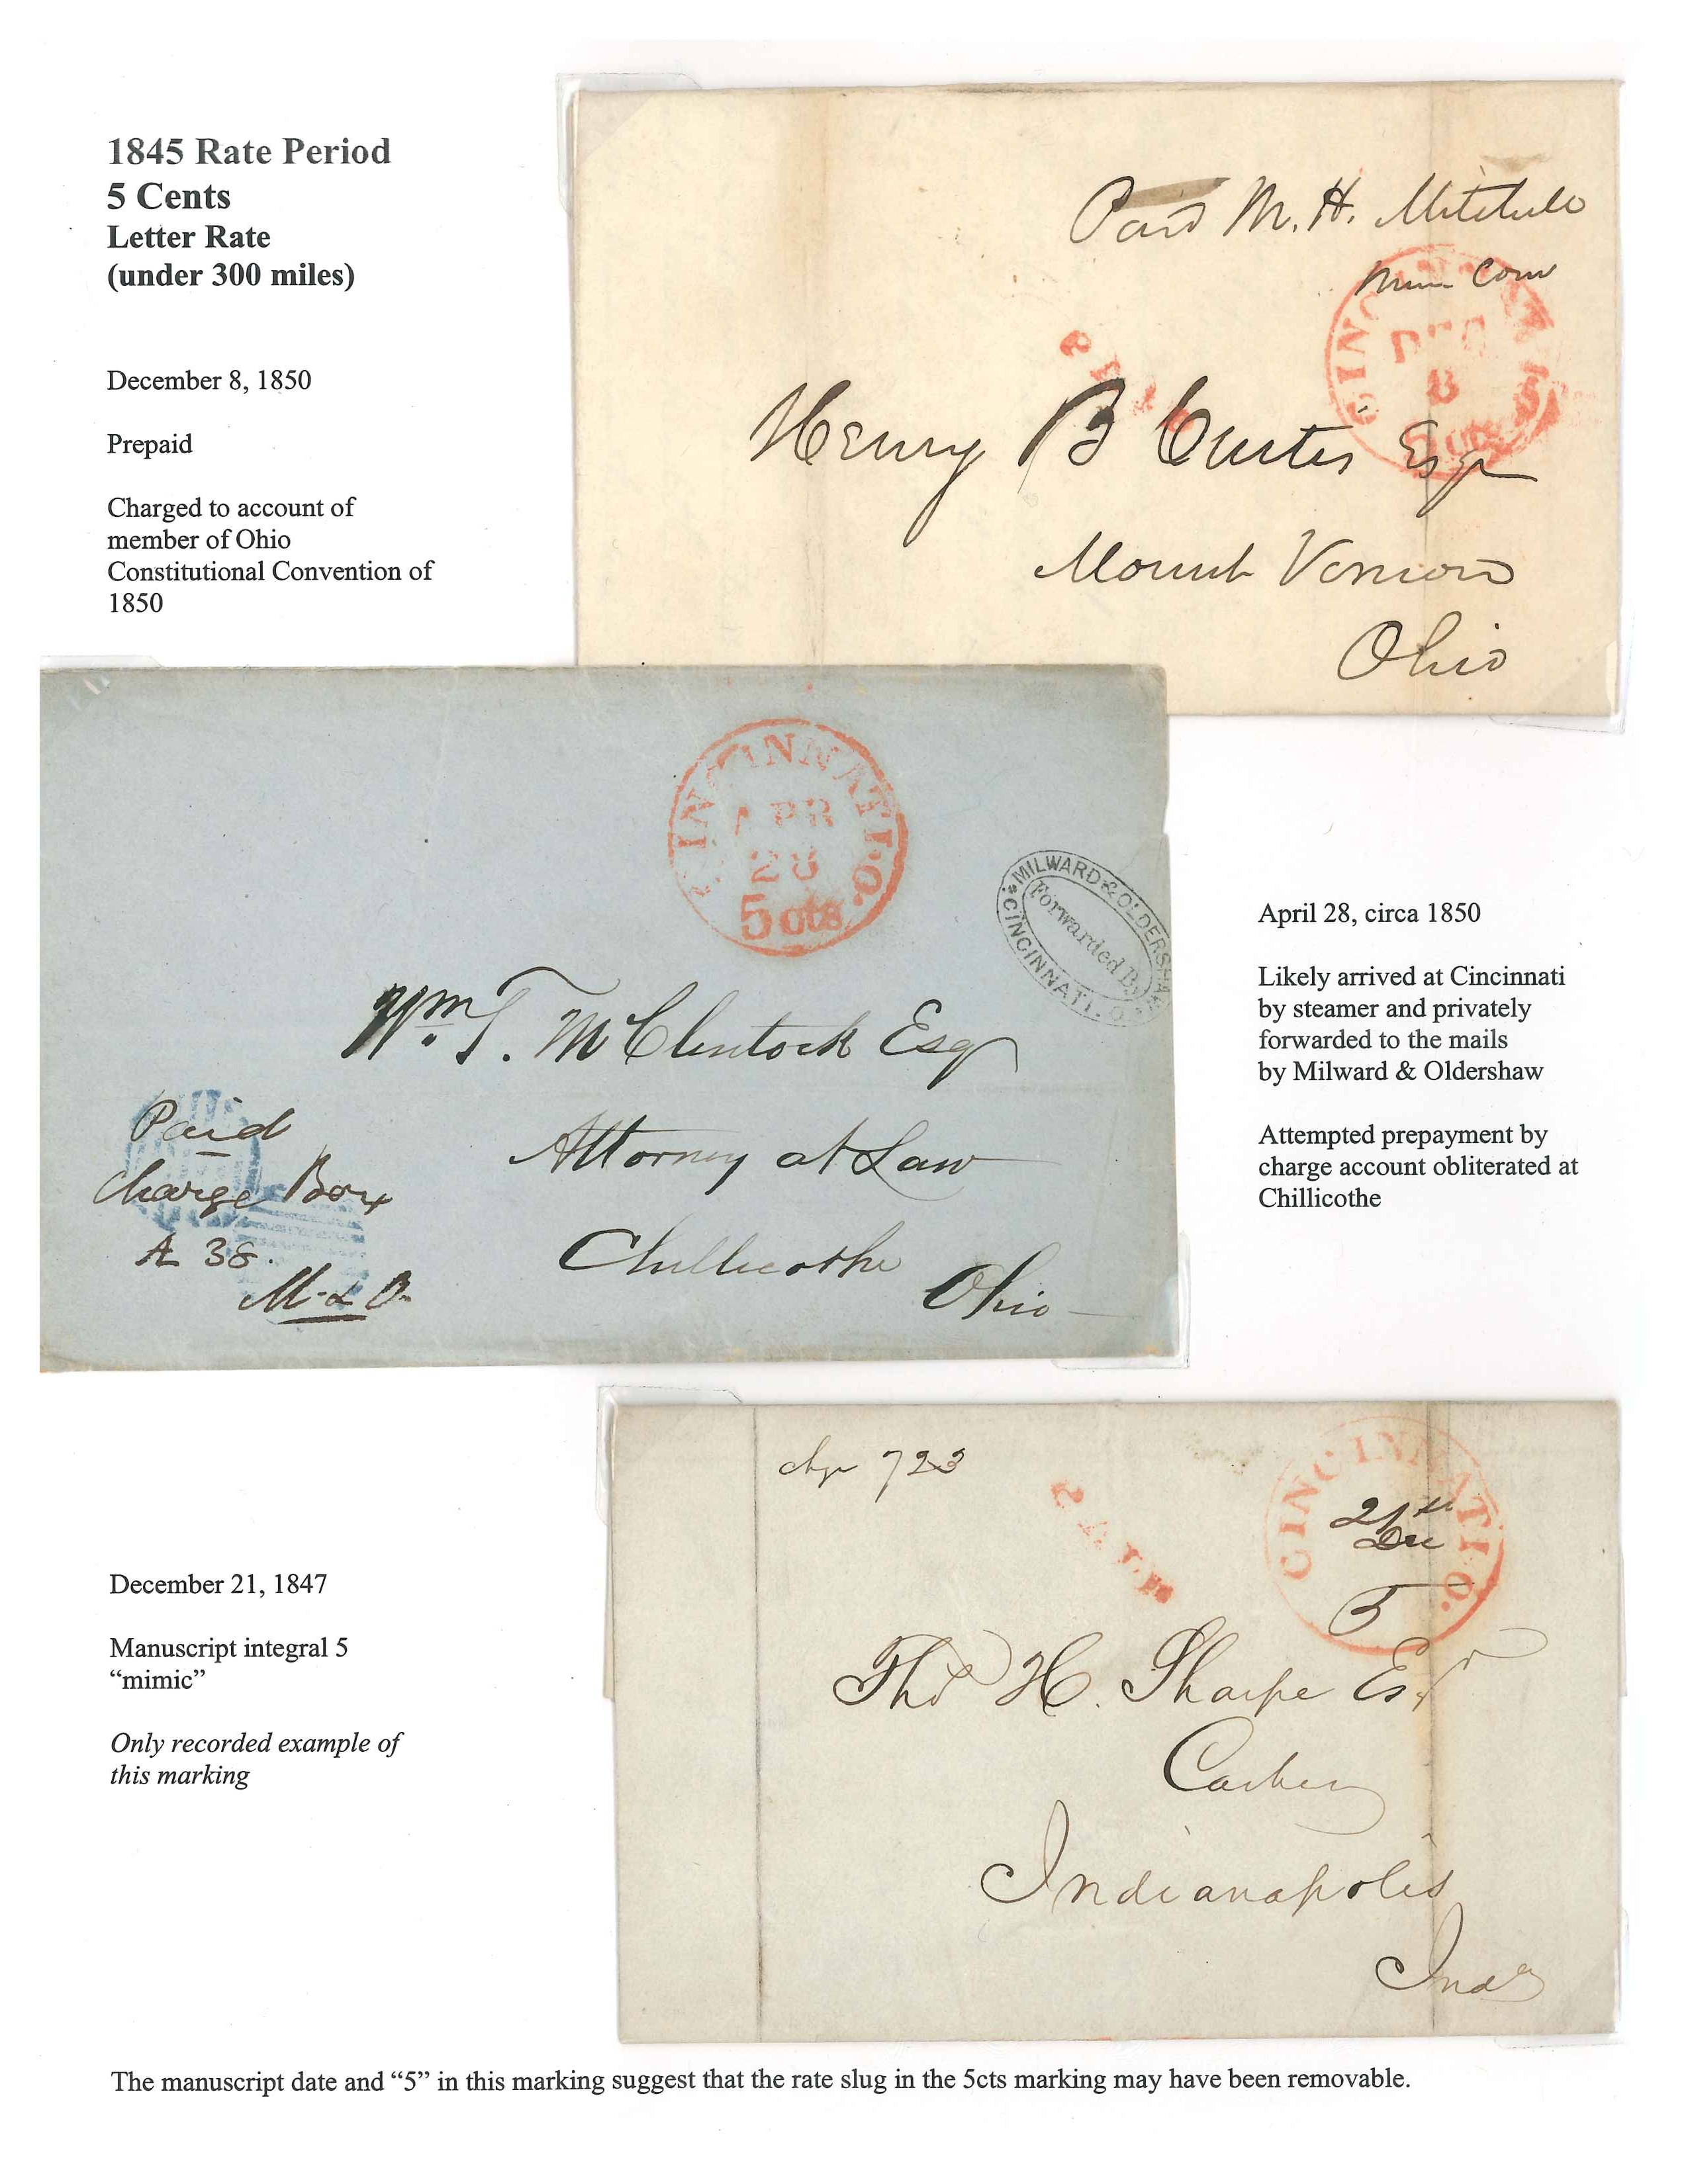 1845 Rate Period
5 Cents
Letter Rate
(under 300 miles)
December 8, 1850
Prepaid
Charged to account of
member of Ohio
Constitutional Convention of
1850
Paid M. H. Mitchell
Mem Conv
CINCINNATI
DEC
8
5 cts
PAID
Henry B Curtis Esqr
Mount Vernon
Ohio
CINCINNATI.O.
APR
28
5 cts
MILWARD & OLDERSHAW
Forwarded By
CINCINNATI. O.
Wm T. McClintock Esq
Attorney at Law
Chillicothe
Ohio
Paid
Charge Box
A 38.
M. & O.
April 28, circa 1850
Likely arrived at Cincinnati
by steamer and privately
forwarded to the mails
by Milward & Oldershaw
Attempted prepayment by
charge account obliterated at
Chillicothe
December 21, 1847
Manuscript integral 5
“mimic”
Only recorded example of
this marking
Chge 723
PAID
CINCINNATI.O.
21st
Dec
5
Tho H. Sharpe Esqr
Indianapolis
Inda
The manuscript date and “5” in this marking suggest that the rate slug in the 5cts marking may have been removable.